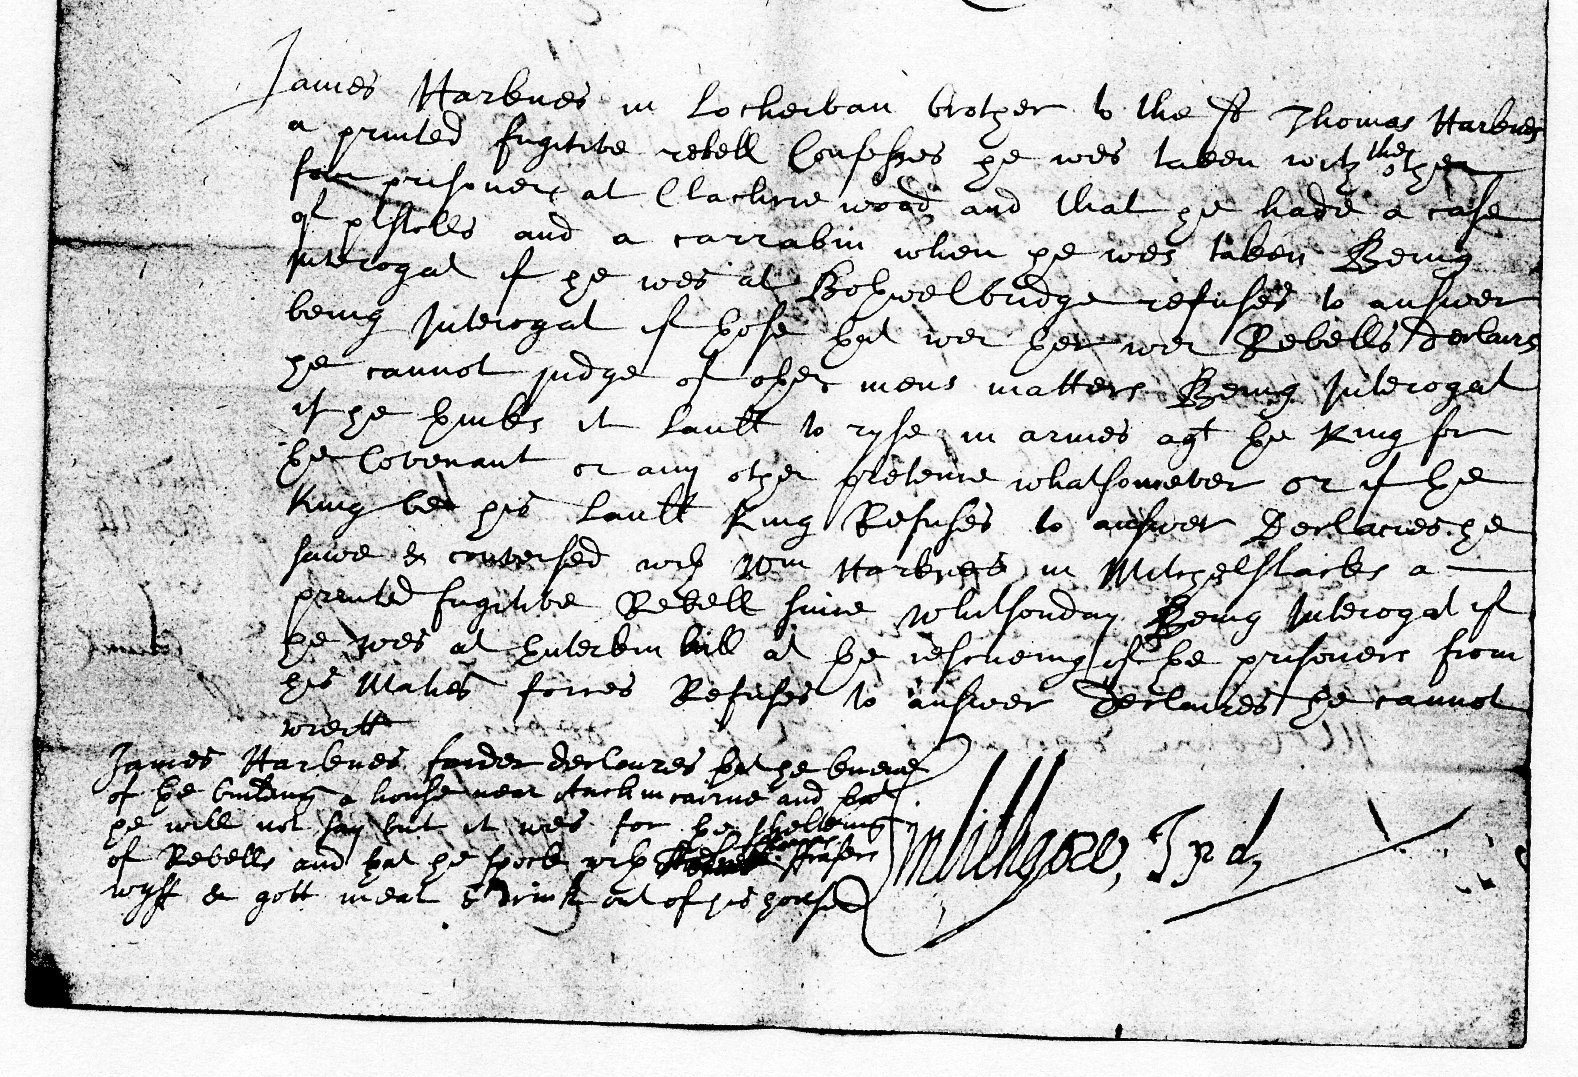 James Harknes in Locherban brother to the sd Thomas Harknes
a printed fugitive rebell Confesses he wes taken with the other
four prisoners at Clachrie wood and that he hade a case
of pistolls and a carrabin when he wes taken Being
Interogat if he wes at Bothwelbridge refuses to answer
being Interogat if those that wer ther wer Rebells Declairs
he cannot judge of other mens matters Being Interogat
if he thinks it laull to ryse in armes agt the King for
the Covenant or any other pretence whatsomever or if the
King be his laull King Refuses to answer Declaires he
sawe & conversed with Wm Harknes in Mitchelslacks a
printed fugitive Rebell since Whitsonday Being Interogat if
he wes at Enterkin hill at the rescueing of the prisoners from
his Maties forces Refuses to answer declaires he cannot
wrett
James Harknes farder declaires that he knew
of the building a house near and that
he will not say but it wes for the sheltering
of Rebells and that he spock with Frasers
wyff & gott meat & drink out of his house
Linlithgow, I P d